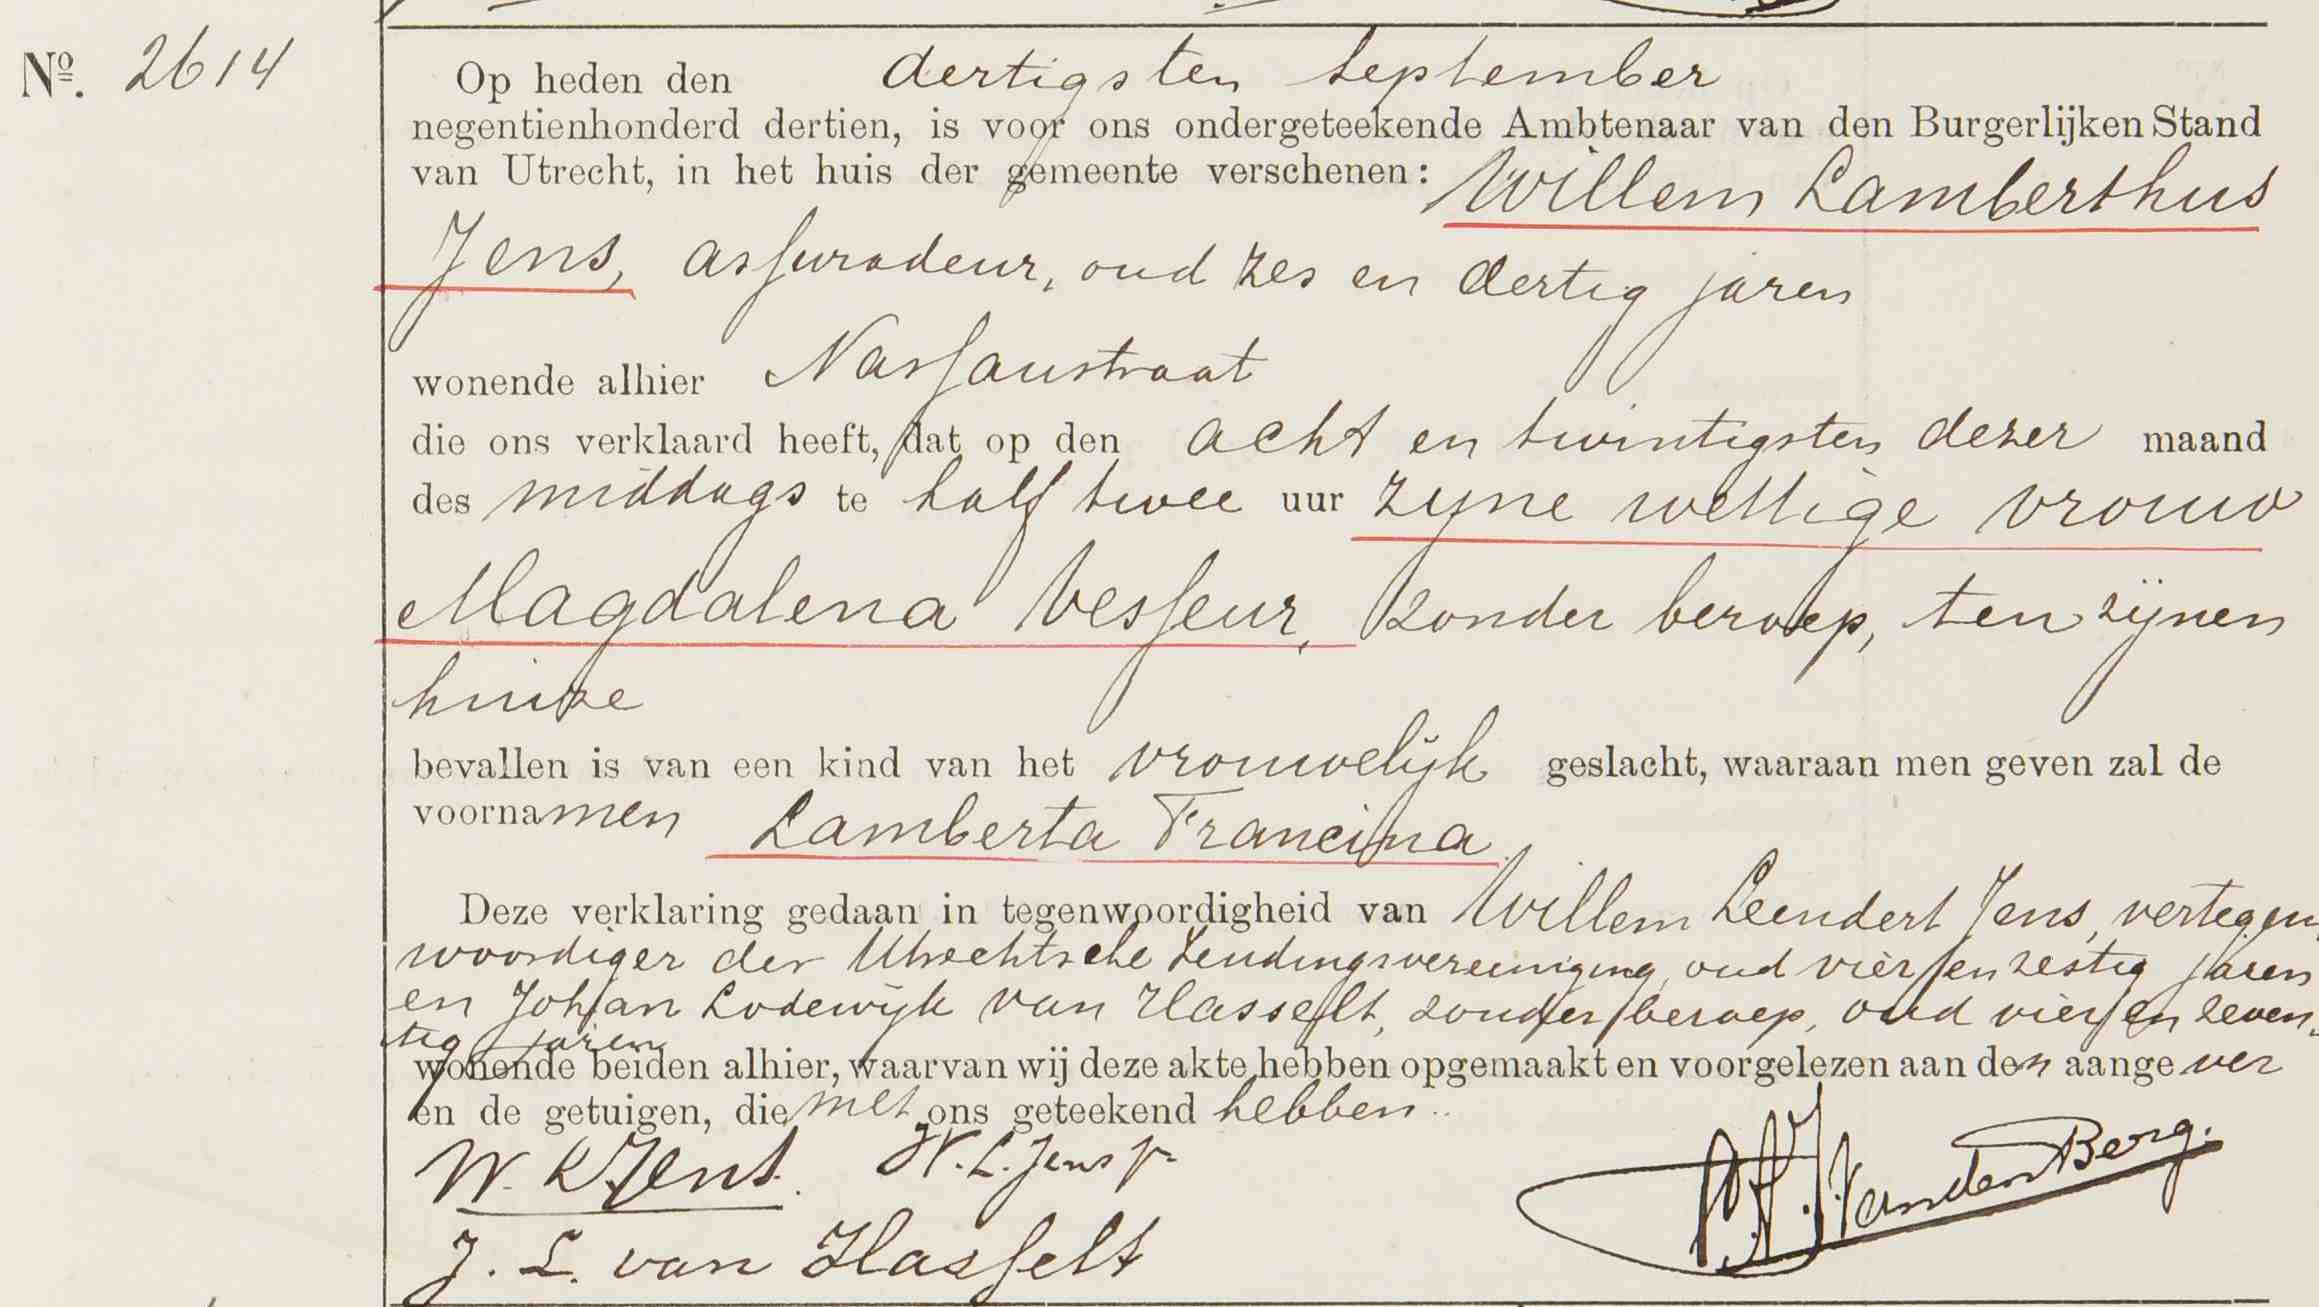 Nº. 2614
Op heden den dertigsten September
negentienhonderd dertien, is voor ons ondergeteekende Ambtenaar van den Burgerlijken Stand
van Utrecht, in het huis der gemeente verschenen: Willem Lamberthus
Jens, assuradeur, oud zes en dertig jaren
wonende alhier Nassaustraat
die ons verklaard heeft, dat op den acht en twintigsten dezer maand
des middags te half twee uur zyne wettige vrouw
Magdalena Vesseur, zonder beroep, ten zijnen
huize
bevallen is van een kind van het vrouwelijk geslacht, waaraan men geven zal de
voornamen Lamberta Francina.
Deze verklaring gedaan in tegenwoordigheid van Willem Leendert Jens, vertegen-
woordiger der Utrechtsche Zendingsvereeniging, oud vier en zestig jaren
en Johan Lodewijk van Hasselt, zonder beroep, oud vier en zeven-
tig jaren
wonende beiden alhier, waarvan wij deze akte hebben opgemaakt en voorgelezen aan den aangever
en de getuigen, die met ons geteekend hebben.
W. L. Jens. W. L. Jens Jr
J. L. van Hasselt
van den Berg.